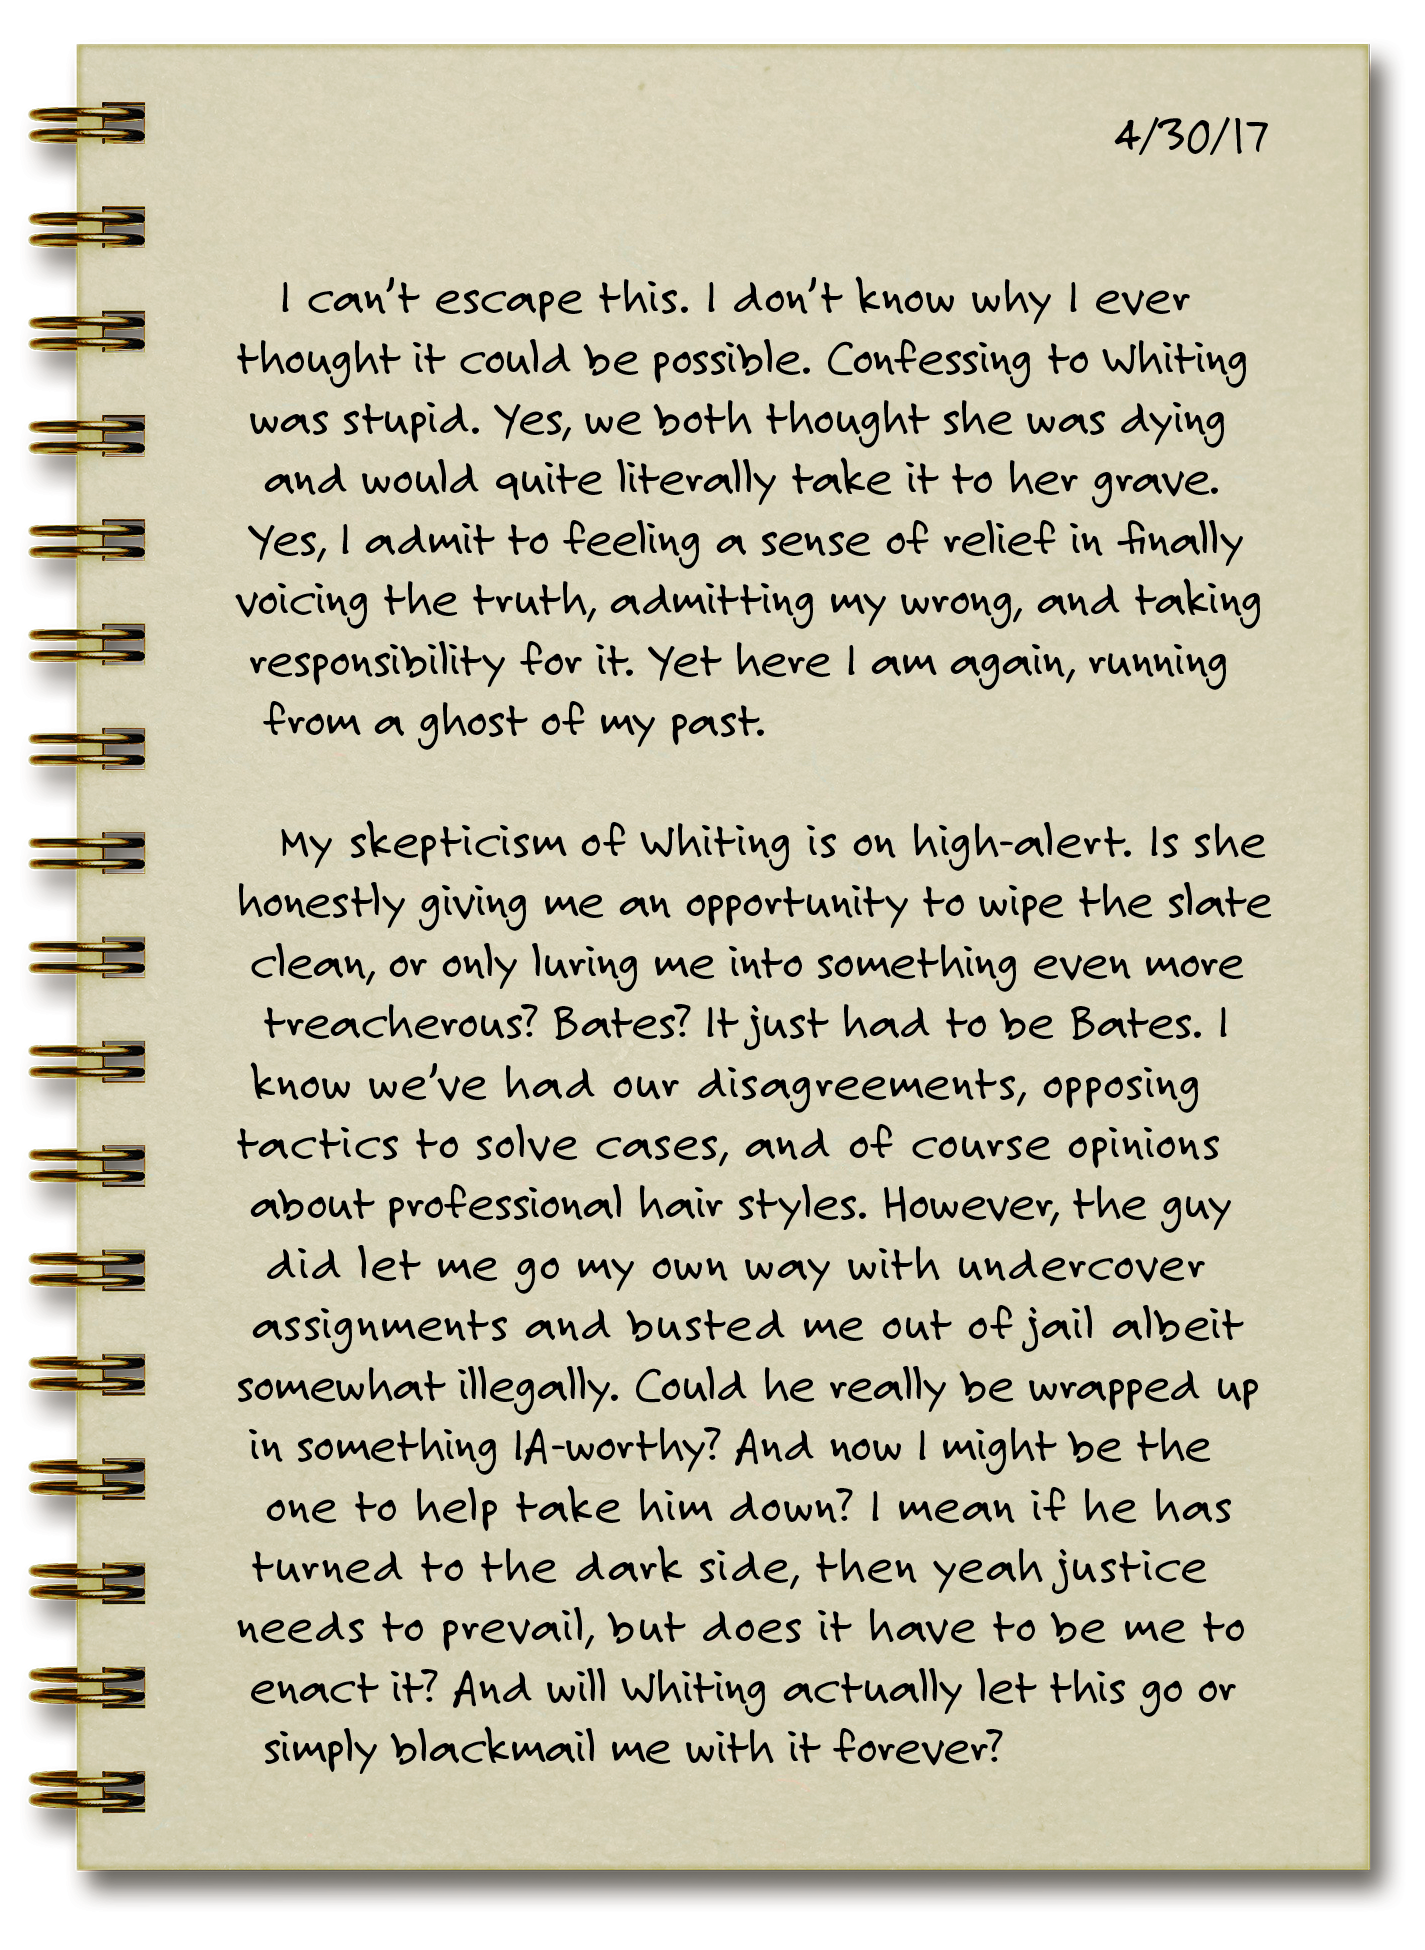 4/30/17
I can't escape this. I don't know why I ever
thought it could be possible. Confessing to Whiting
was stupid. Yes, we both thought she was dying
and would quite literally take it to her grave.
Yes, I admit to feeling a sense of relief in finally
voicing the truth, admitting my wrong, and taking
responsibility for it. Yet here I am again, running
from a ghost of my past.
My skepticism of Whiting is on high-alert. Is she
honestly giving me an opportunity to wipe the slate
clean, or only luring me into something even more
treacherous? Bates? It just had to be Bates. I
know we've had our disagreements, opposing
tactics to solve cases, and of course opinions
about professional hair styles. However, the guy
did let me go my own way with undercover
assignments and busted me out of jail albeit
somewhat illegally. Could he really be wrapped up
in something IA-worthy? And now I might be the
one to help take him down? I mean if he has
turned to the dark side, then yeah justice
needs to prevail, but does it have to be me to
enact it? And will Whiting actually let this go or
simply blackmail me with it forever?